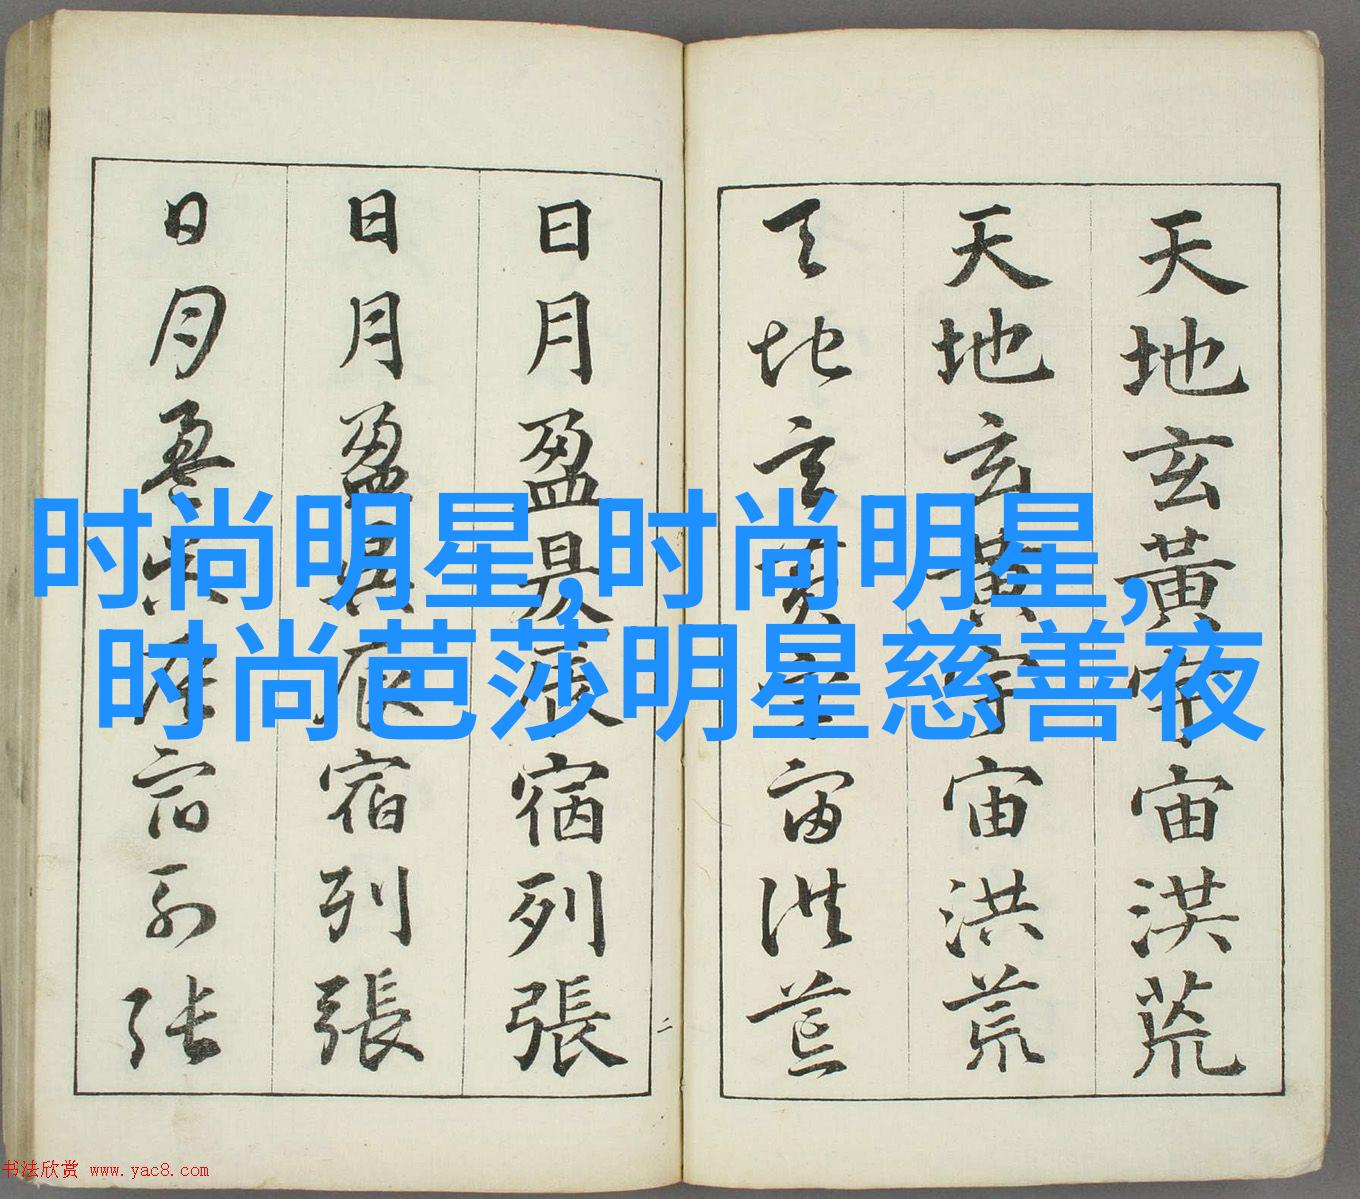 天地玄黃宇宙洪荒
天地玄黃宇宙洪荒
天地玄黃宇宙洪荒
日月盈昃辰宿列張
日月盈昃辰宿列張
日月盈昃辰宿列張
二
时尚明星,时尚明星,
时尚芭莎明星慈善夜
书法欣赏 www.yac8.com